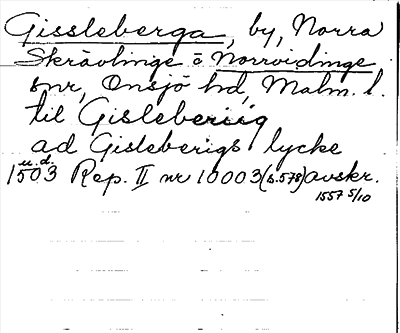 Gissleberga, by, Norra
Skrävlinge o Norrvidinge
snr, Onsjö hd, Malm. l.
til Gisleberiig
ad Gisleberigs lycke
u.d.
1503 Rep. II nr 10003 (s.578) avskr.
1557 5/10